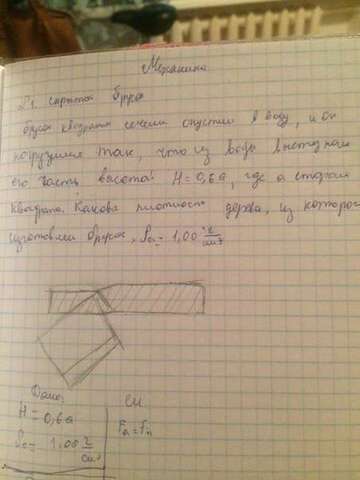 Механика
№1. скрытый брусок
брусок квадратн сечения опустили в воду, и он
погрузился так, что из воды выступает
его часть, высота H = 0,6a, где a сторона
квадрата. Какова плотность дерева, из которого
изготовлен брусок, ρ₀ = 1,00 г/см³
Дано:
H = 0,6a
ρ₀ = 1,00 г/см³
СИ
Fa = Fт